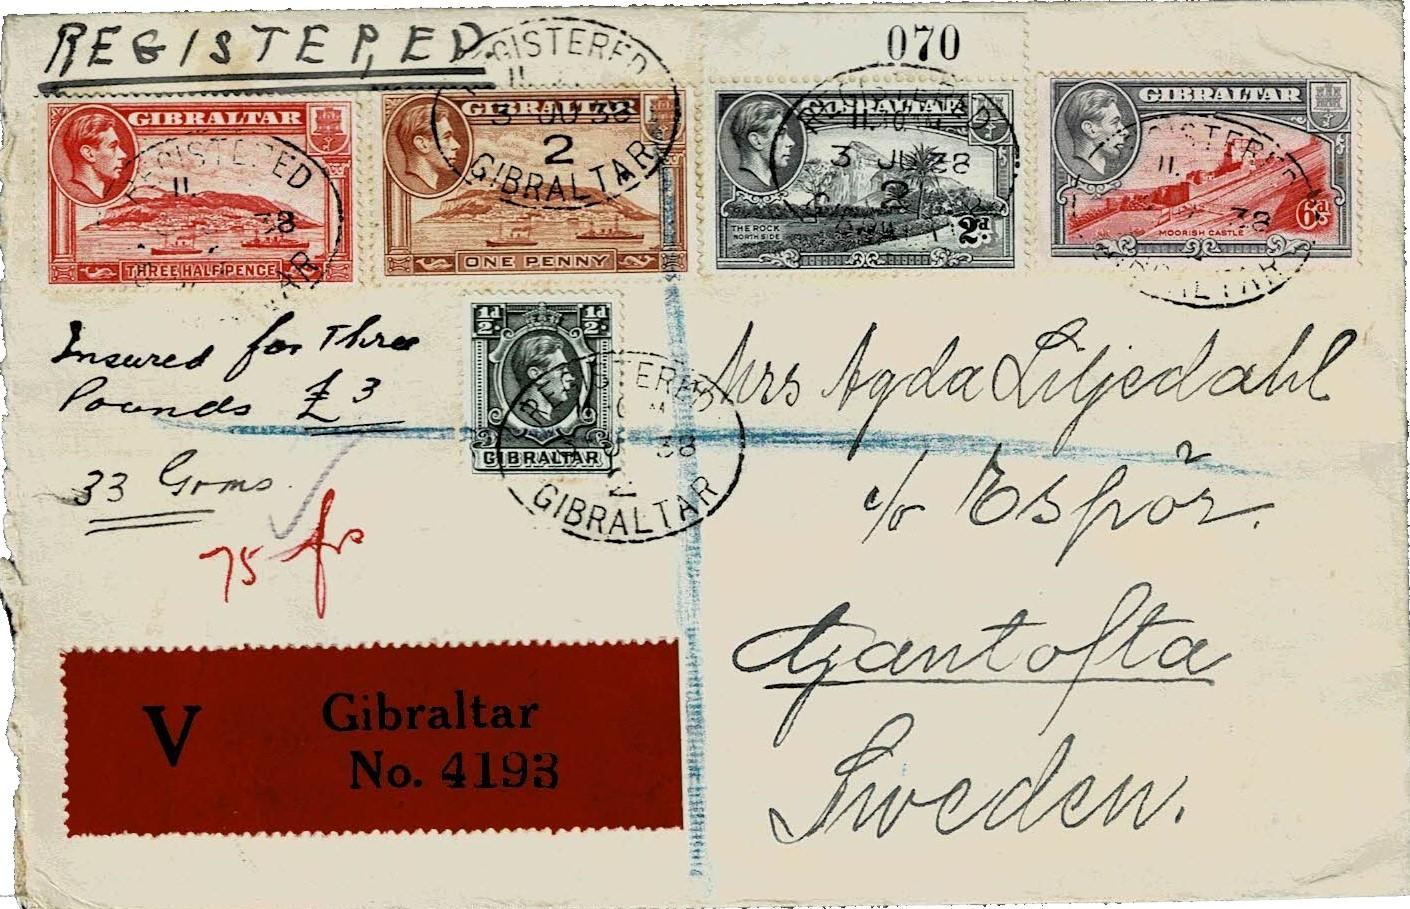 REGISTERED
070
GIBRALTAR
THREE HALFPENCE
GIBRALTAR
ONE PENNY
GIBRALTAR
THE ROCK
NORTH SIDE
2d.
GIBRALTAR
MOORISH CASTLE
6d.
REGISTERED
11
38
REGISTERED
3 38
2
GIBRALTAR
REGISTERED
3 JL 38
2
REGISTERED
11
38
2
GIBRALTAR
½d. ½d.
GIBRALTAR
REGISTERED
38
2
GIBRALTAR
Insured for Three
Pounds £3
33 Grms.
75 frs
Mrs Agda Liljedahl
c/o Espör.
Gantofta
Sweden.
V Gibraltar
No. 4193